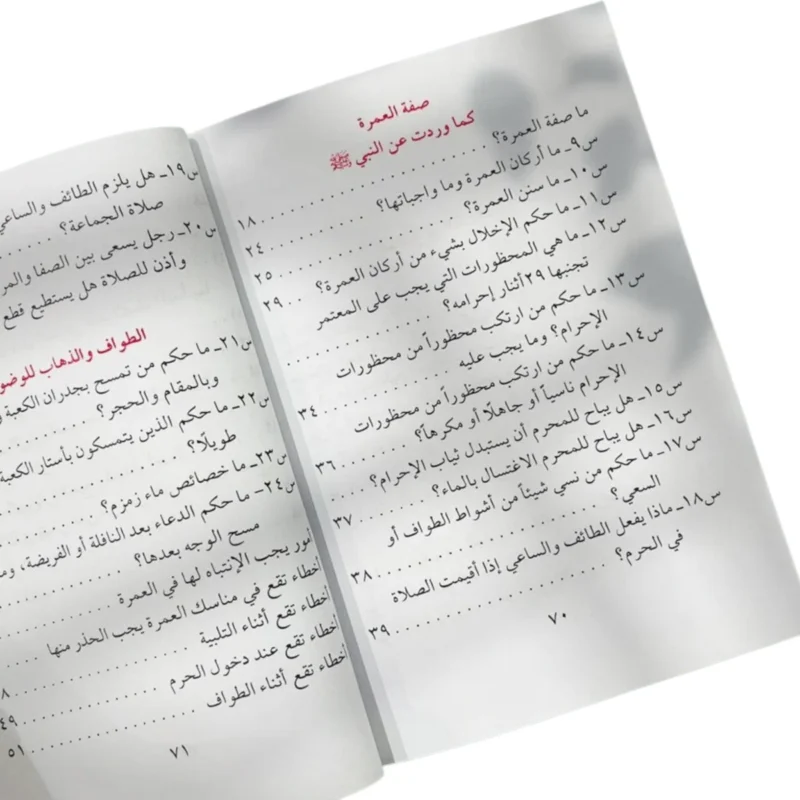 صفة العمرة
كما وردت عن النبي ﷺ
ما صفة العمرة؟ . . . . . . . . . . . . . . . . . . ١٨
س٩ـ ما أركان العمرة وما واجباتها؟ . . . . . . . . . . ٢٤
س١٠ـ ما سنن العمرة؟ . . . . . . . . . . . . . . . . ٢٥
س١١ـ ما حكم الإخلال بشيء من أركان العمرة؟ . . ٢٩
س١٢ـ ما هي المحظورات التي يجب على المعتمر
تجنبها ٢٩ أثنار إحرامه؟ . . . . . . . . . . . .
س١٣ـ ما حكم من ارتكب محظوراً من محظورات
الإحرام؟ وما يجب عليه . . . . . . . . . . . ٣٤
س١٤ـ ما حكم من ارتكب محظوراً من محظورات
الإحرام ناسياً أو جاهلًا أو مكرهاً؟ . . . . . . . ٣٦
س١٥ـ هل يباح للمحرم أن يستبدل ثياب الإحرام؟ . . .
س١٦ـ هل يباح للمحرم الاغتسال بالماء؟ . . . . . . . ٣٧
س١٧ـ ما حكم من نسي شيئاً من أشواط الطواف أو
السعي؟ . . . . . . . . . . . . . . . . . . . ٣٨
س١٨ـ ماذا يفعل الطائف والساعي إذا أقيمت الصلاة
في الحرم؟ . . . . . . . . . . . . . . . . . . ٣٩
٧٠
س١٩ـ هل يلزم الطائف والساعي
صلاة الجماعة؟ . . . . . .
س٢٠ـ رجل يسعى بين الصفا والمر
وأذن للصلاة هل يستطيع قطع
الطواف والذهاب للوضو
س٢١ـ ما حكم من تمسح بجدران الكعبة
وبالمقام والحجر؟ . . . . . . . . .
س٢٢ـ ما حكم الذين يتمسكون بأستار الكعبة
طويلًا؟ . . . . . . . . . . . . . .
س٢٣ـ ما خصائص ماء زمزم؟ . . . . . . . .
س٢٤ـ ما حكم الدعاء بعد النافلة أو الفريضة، وم
مسح الوجه بعدها؟ . . . . . . . . . .
أمور يجب الإنتباه لها في العمرة . . . . . . . .
أخطاء تقع في مناسك العمرة يجب الحذر منها . . . .
أخطاء تقع أثناء التلبية . . . . . . . . . . . . ٨
أخطاء تقع عند دخول الحرم . . . . . . . . . . ٤٩
أخطاء تقع أثناء الطواف . . . . . . . . . . . . ٥١
٧١